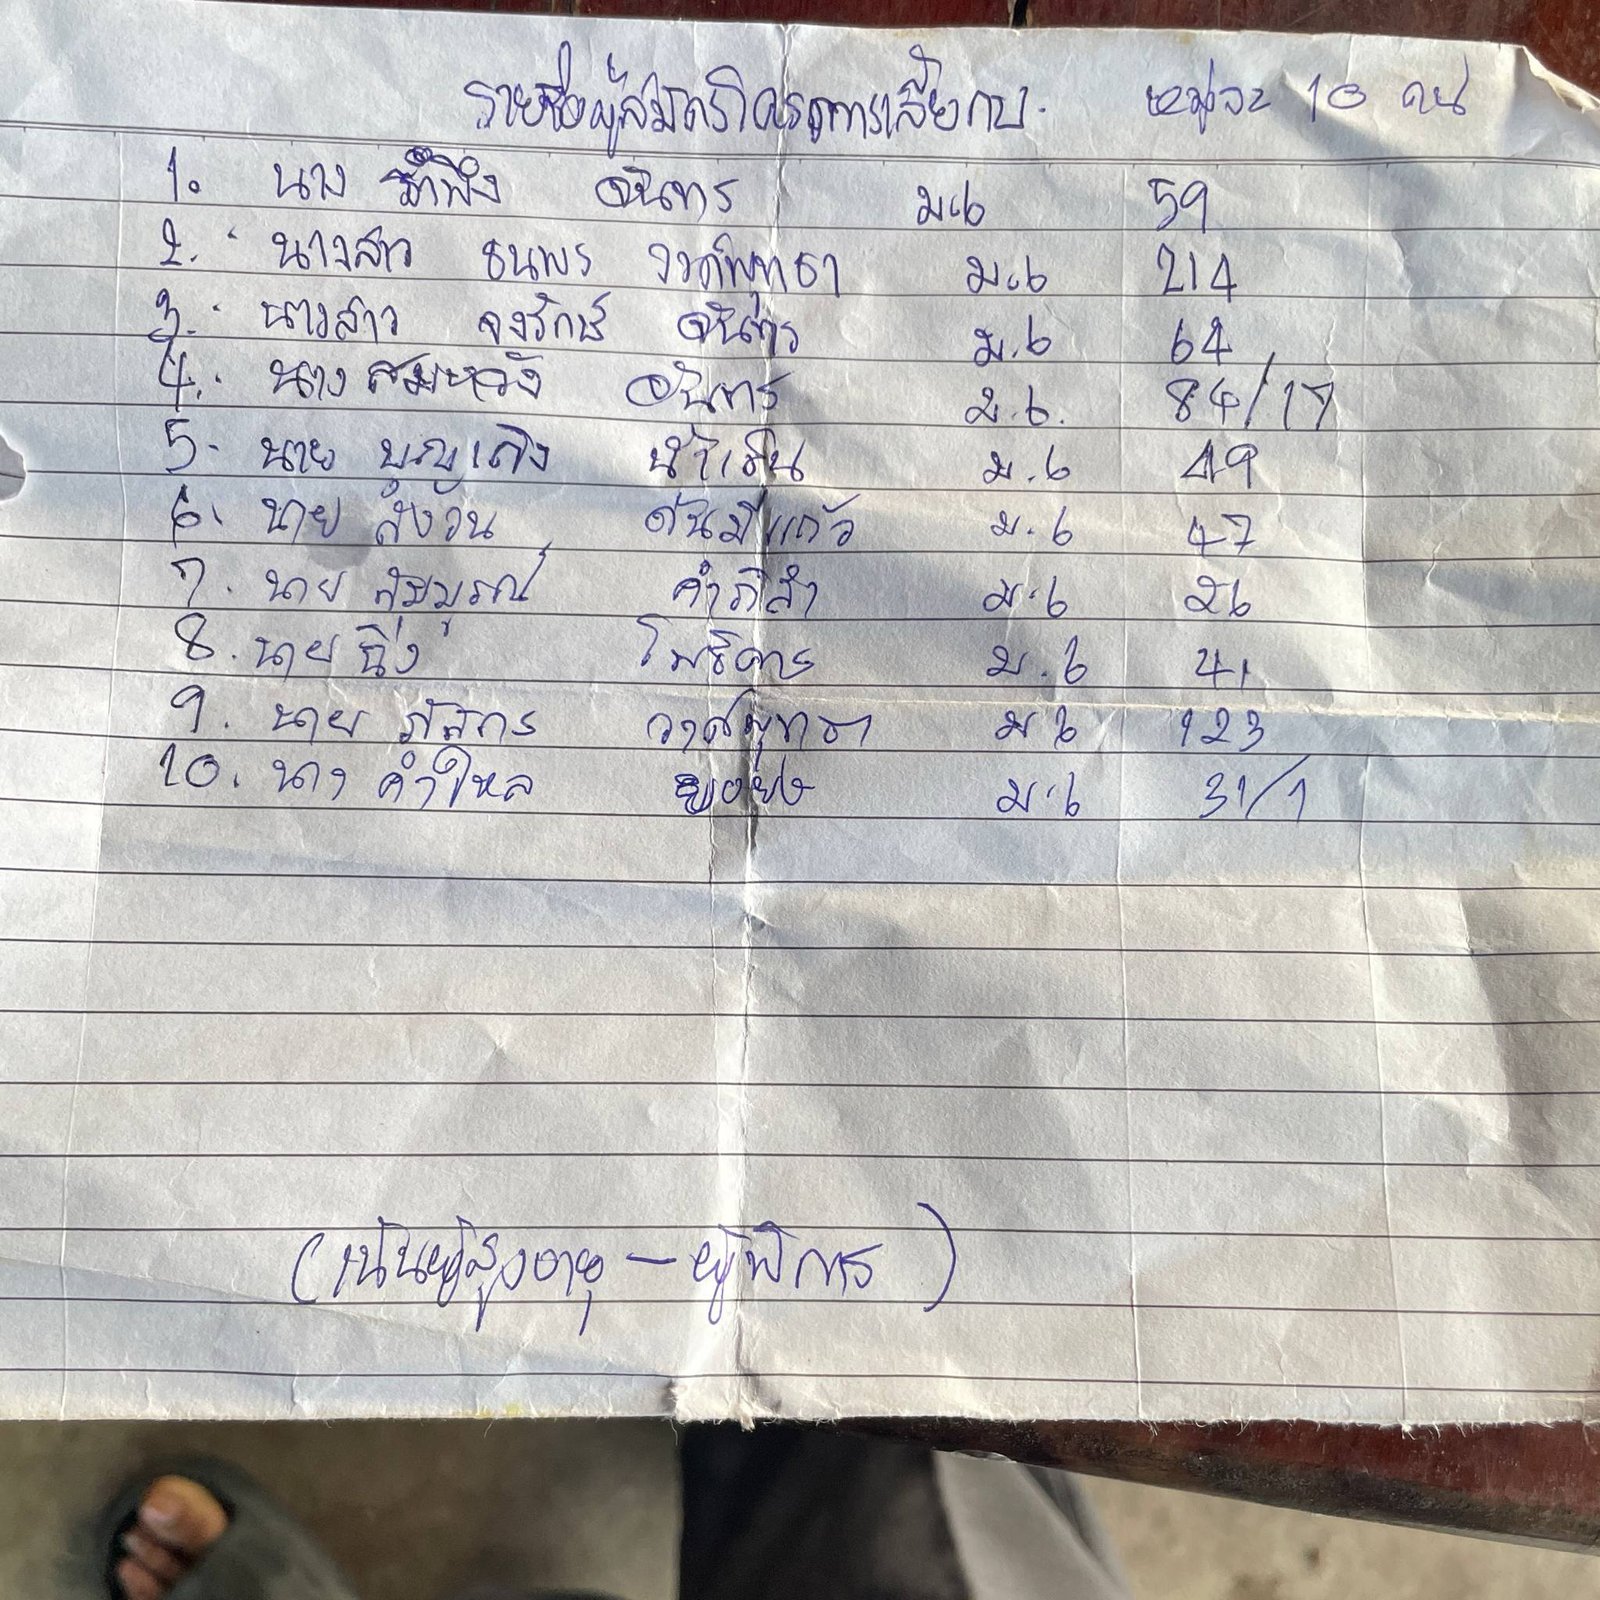 รายชื่อผู้สมัครโครงการเลี้ยงกบ. หมู่ละ 10 คน
1. นาง รำพึง จันทร ม.6 59
2. นางสาว ธนพร วงค์พุทธา ม.6 214
3. นางสาว จงรักษ์ จันทร ม.6 64
4. นาง สมหวัง จันทร ม.6. 84/17
5. นาย บุญเถิง ม.6 49
6. นาย สังวัน ต้นมีแก้ว ม.6 47
7. นาย สมบูรณ์ คำภิสำ ม.6 26
8. นาย ฉิ่ง โพธิคาร ม.6 41
9. นาย ภัสกร วงศ์พุทธา ม.6 123
10. นาง คำใหล ม.6 31/1
(เน้นผู้สูงอายุ – ผู้พิการ)